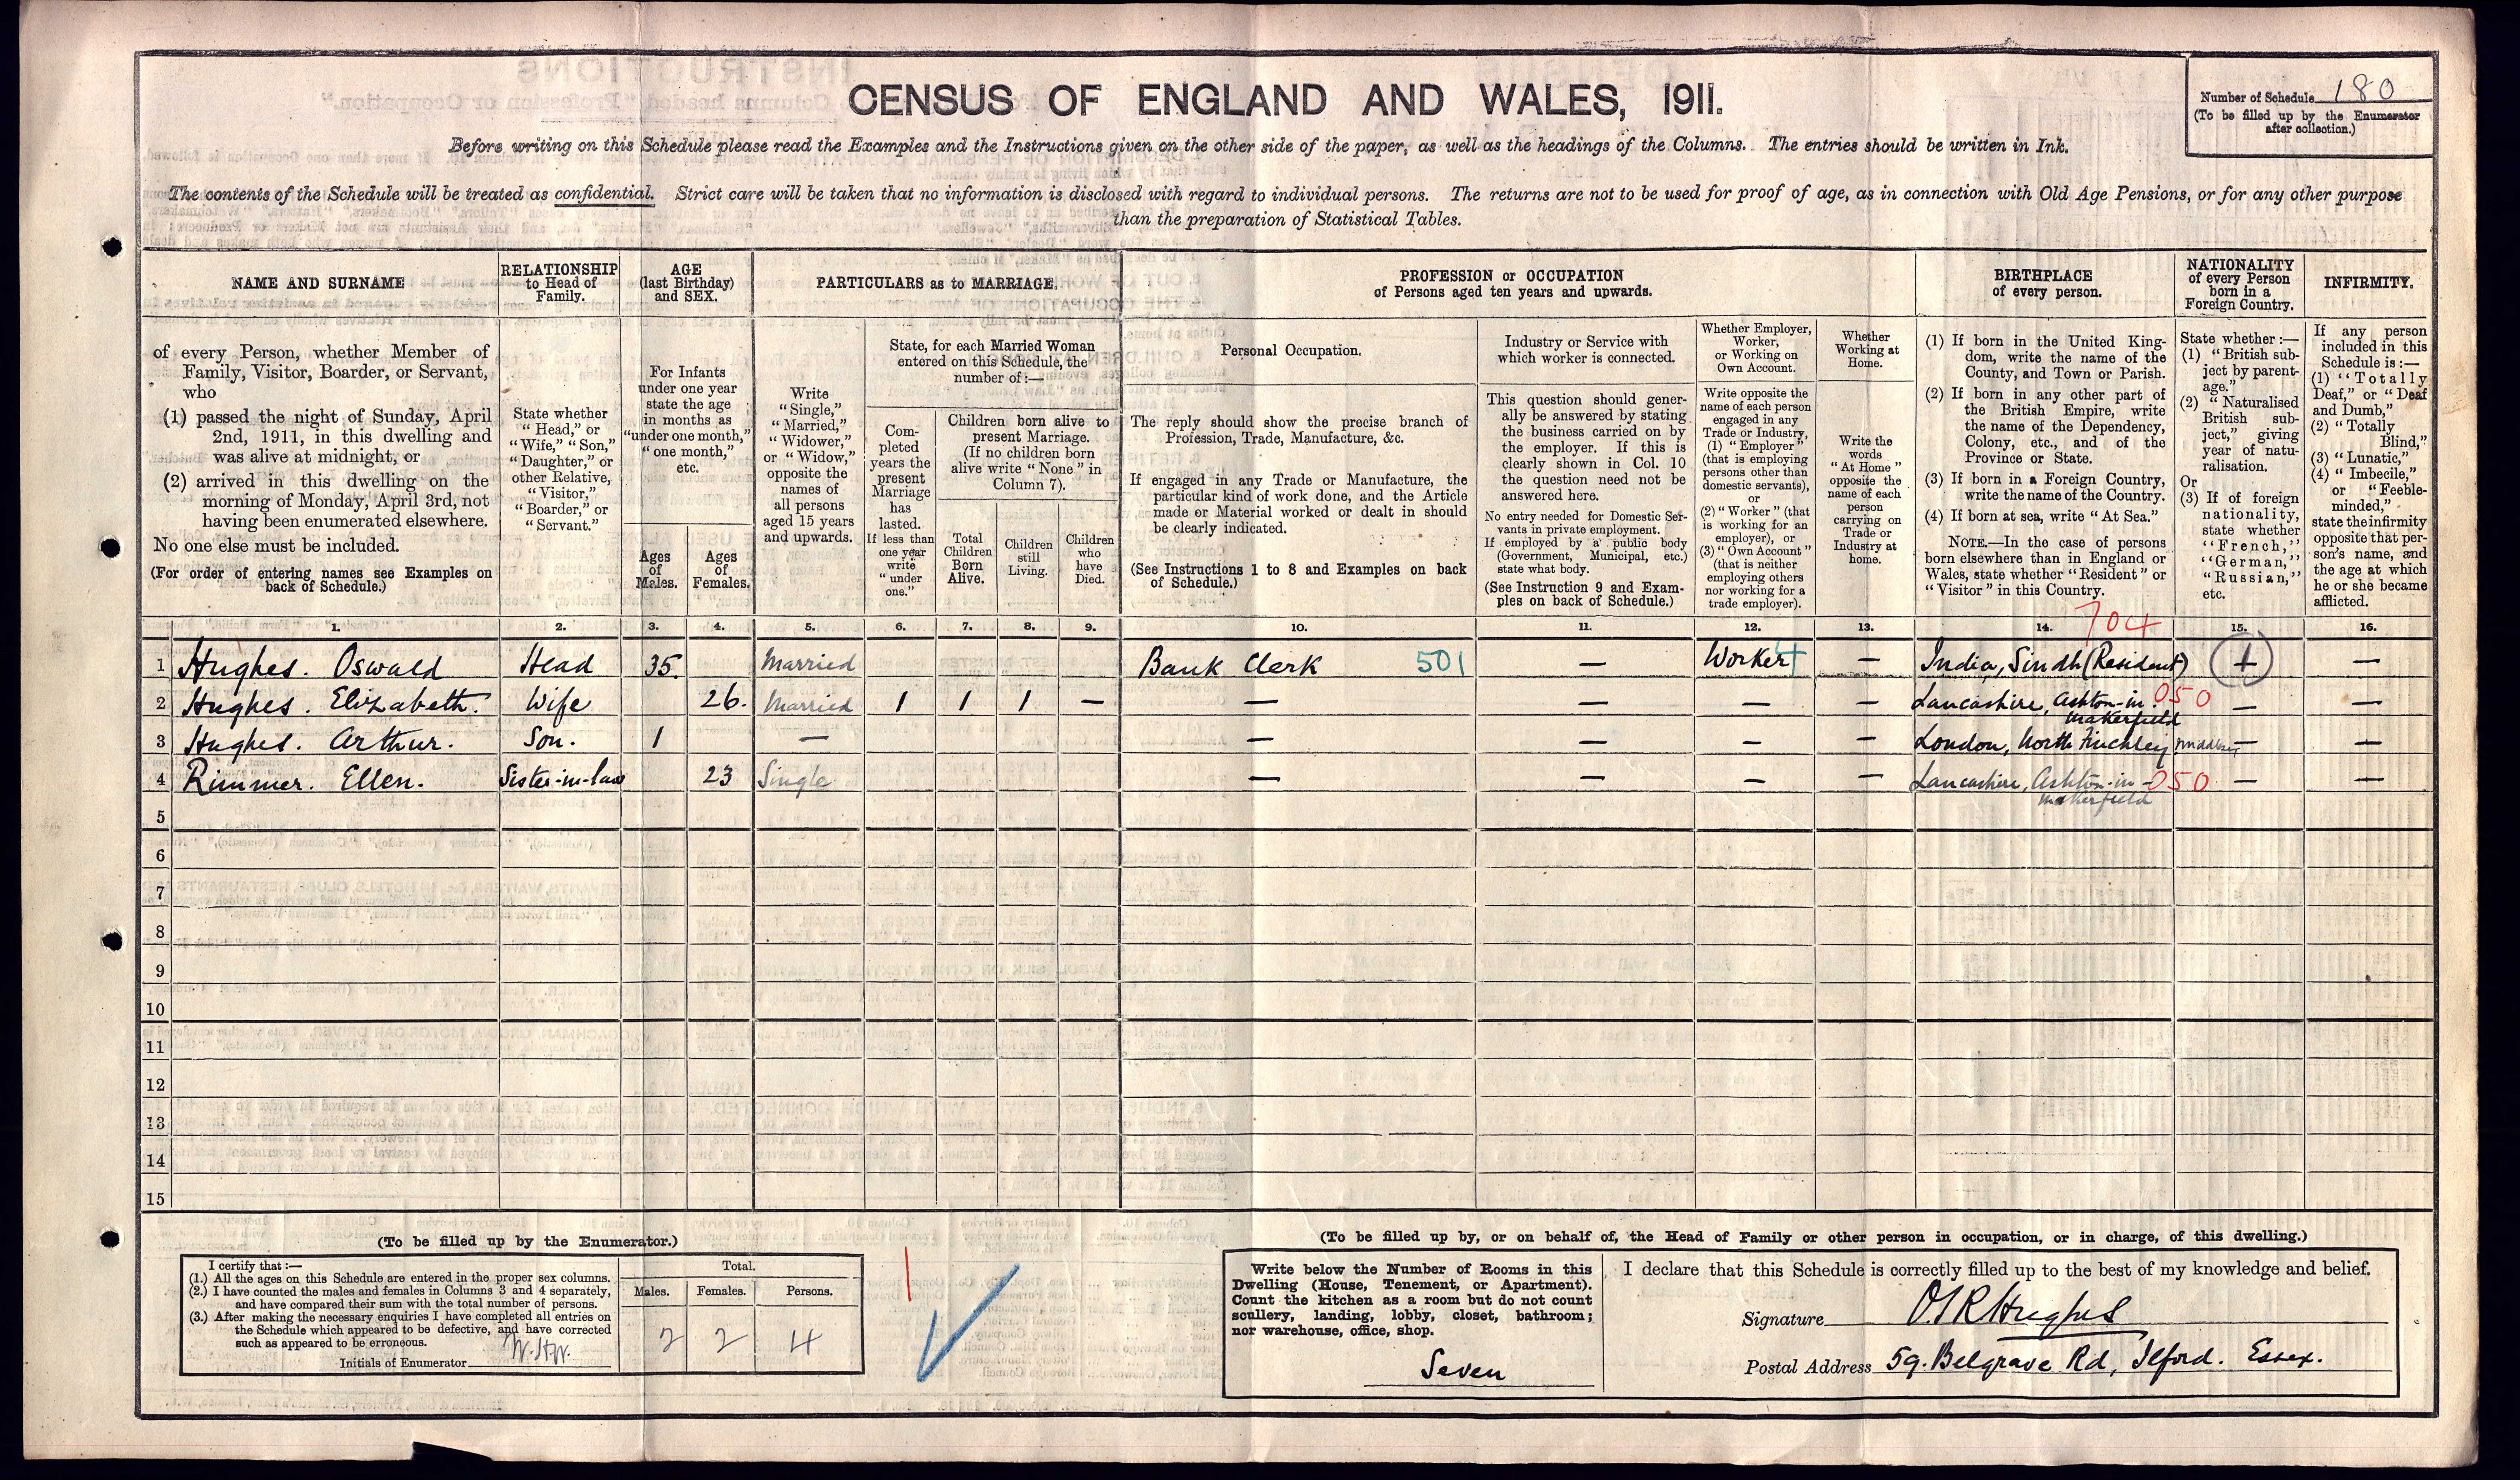 CENSUS OF ENGLAND AND WALES, 1911.
Number of Schedule 180
(To be filled up by the Enumerator
after collection.)
Before writing on this Schedule please read the Examples and the Instructions given on the other side of the paper, as well as the headings of the Columns. The entries should be written in Ink.
The contents of the Schedule will be treated as confidential. Strict care will be taken that no information is disclosed with regard to individual persons. The returns are not to be used for proof of age, as in connection with Old Age Pensions, or for any other purpose
than the preparation of Statistical Tables.
NAME AND SURNAME
of every Person, whether Member of
Family, Visitor, Boarder, or Servant,
who
(1) passed the night of Sunday, April
2nd, 1911, in this dwelling and
was alive at midnight, or
(2) arrived in this dwelling on the
morning of Monday, April 3rd, not
having been enumerated elsewhere.
No one else must be included.
(For order of entering names see Examples on
back of Schedule.)
RELATIONSHIP
to Head of
Family.
State whether
"Head," or
"Wife," "Son,"
"Daughter," or
other Relative,
"Visitor,"
"Boarder," or
"Servant."
AGE
(last Birthday)
and SEX.
For Infants
under one year
state the age
in months as
"under one month,"
"one month,"
etc.
Ages
of
Males.
Ages
of
Females.
PARTICULARS as to MARRIAGE.
Write
"Single,"
"Married,"
"Widower,"
or "Widow,"
opposite the
names of
all persons
aged 15 years
and upwards.
State, for each Married Woman
entered on this Schedule, the
number of:—
Com-
pleted
years the
present
Marriage
has
lasted.
If less than
one year
write
"under
one."
Children born alive to
present Marriage.
(If no children born
alive write "None" in
Column 7).
Total
Children
Born
Alive.
Children
still
Living.
Children
who
have
Died.
PROFESSION or OCCUPATION
of Persons aged ten years and upwards.
Personal Occupation.
The reply should show the precise branch of
Profession, Trade, Manufacture, &c.
If engaged in any Trade or Manufacture, the
particular kind of work done, and the Article
made or Material worked or dealt in should
be clearly indicated.
(See Instructions 1 to 8 and Examples on back
of Schedule.)
Industry or Service with
which worker is connected.
This question should gener-
ally be answered by stating
the business carried on by
the employer. If this is
clearly shown in Col. 10
the question need not be
answered here.
No entry needed for Domestic Ser-
vants in private employment.
If employed by a public body
(Government, Municipal, etc.)
state what body.
(See Instruction 9 and Exam-
ples on back of Schedule.)
Whether Employer,
Worker,
or Working on
Own Account.
Write opposite the
name of each person
engaged in any
Trade or Industry,
(1) "Employer"
(that is employing
persons other than
domestic servants),
or
(2) "Worker" (that
is working for an
employer), or
(3) "Own Account"
(that is neither
employing others
nor working for a
trade employer).
Whether
Working at
Home.
Write the
words
"At Home"
opposite the
name of each
person
carrying on
Trade or
Industry at
home.
BIRTHPLACE
of every person.
(1) If born in the United King-
dom, write the name of the
County, and Town or Parish.
(2) If born in any other part of
the British Empire, write
the name of the Dependency,
Colony, etc., and of the
Province or State.
(3) If born in a Foreign Country,
write the name of the Country.
(4) If born at sea, write "At Sea."
NOTE.—In the case of persons
born elsewhere than in England or
Wales, state whether "Resident" or
"Visitor" in this Country.
NATIONALITY
of every Person
born in a
Foreign Country.
State whether:—
(1) "British sub-
ject by parent-
age."
(2) "Naturalised
British sub-
ject," giving
year of natu-
ralisation.
Or
(3) If of foreign
nationality,
state whether
"French,"
"German,"
"Russian,"
etc.
INFIRMITY.
If any person
included in this
Schedule is:—
(1) "Totally
Deaf," or "Deaf
and Dumb,"
(2) "Totally
Blind,"
(3) "Lunatic,"
(4) "Imbecile,"
or "Feeble-
minded,"
state the infirmity
opposite that per-
son's name, and
the age at which
he or she became
afflicted.
1. 2. 3. 4. 5. 6. 7. 8. 9. 10. 11. 12. 13. 14. 704 15. 16.
1 Hughes. Oswald Head 35. Married Bank Clerk 501 — Worker 4 — India, Sindh (Resident) + —
2 Hughes. Elizabeth. Wife 26. Married 1 1 1 — — — — — Lancashire, Ashton-in- 050 — —
Makerfield
3 Hughes. Arthur. Son. 1 — — — — — London, North Finchley Middlesex — —
4 Rimmer. Ellen. Sister-in-law 23 Single — — — — Lancashire, Ashton-in- 050 — —
Makerfield
5
6
7
8
9
10
11
12
13
14
15
(To be filled up by the Enumerator.)
I certify that:—
(1.) All the ages on this Schedule are entered in the proper sex columns.
(2.) I have counted the males and females in Columns 3 and 4 separately,
and have compared their sum with the total number of persons.
(3.) After making the necessary enquiries I have completed all entries on
the Schedule which appeared to be defective, and have corrected
such as appeared to be erroneous.
Initials of Enumerator
Total.
Males. Females. Persons.
2 2 4
(To be filled up by, or on behalf of, the Head of Family or other person in occupation, or in charge, of this dwelling.)
Write below the Number of Rooms in this
Dwelling (House, Tenement, or Apartment).
Count the kitchen as a room but do not count
scullery, landing, lobby, closet, bathroom;
nor warehouse, office, shop.
Seven
I declare that this Schedule is correctly filled up to the best of my knowledge and belief.
Signature Hughes
Postal Address 59. Belgrave Rd, Ilford. Essex.